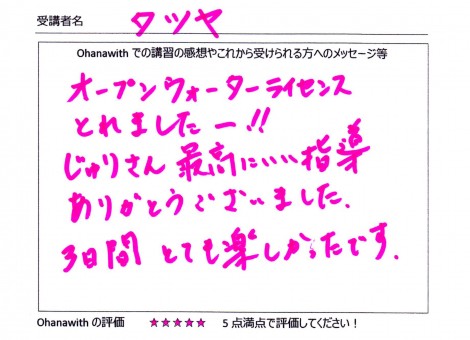 受講者名 タツヤ
Ohanawith での講習の感想やこれから受けられる方へのメッセージ等
オープンウォーターライセンス
とれましたー!!
じゅりさん 最高にいい指導
ありがとうございました.
3日間 とても楽しかったです.
Ohanawith の評価 ★★★★★ 5 点満点で評価してください！